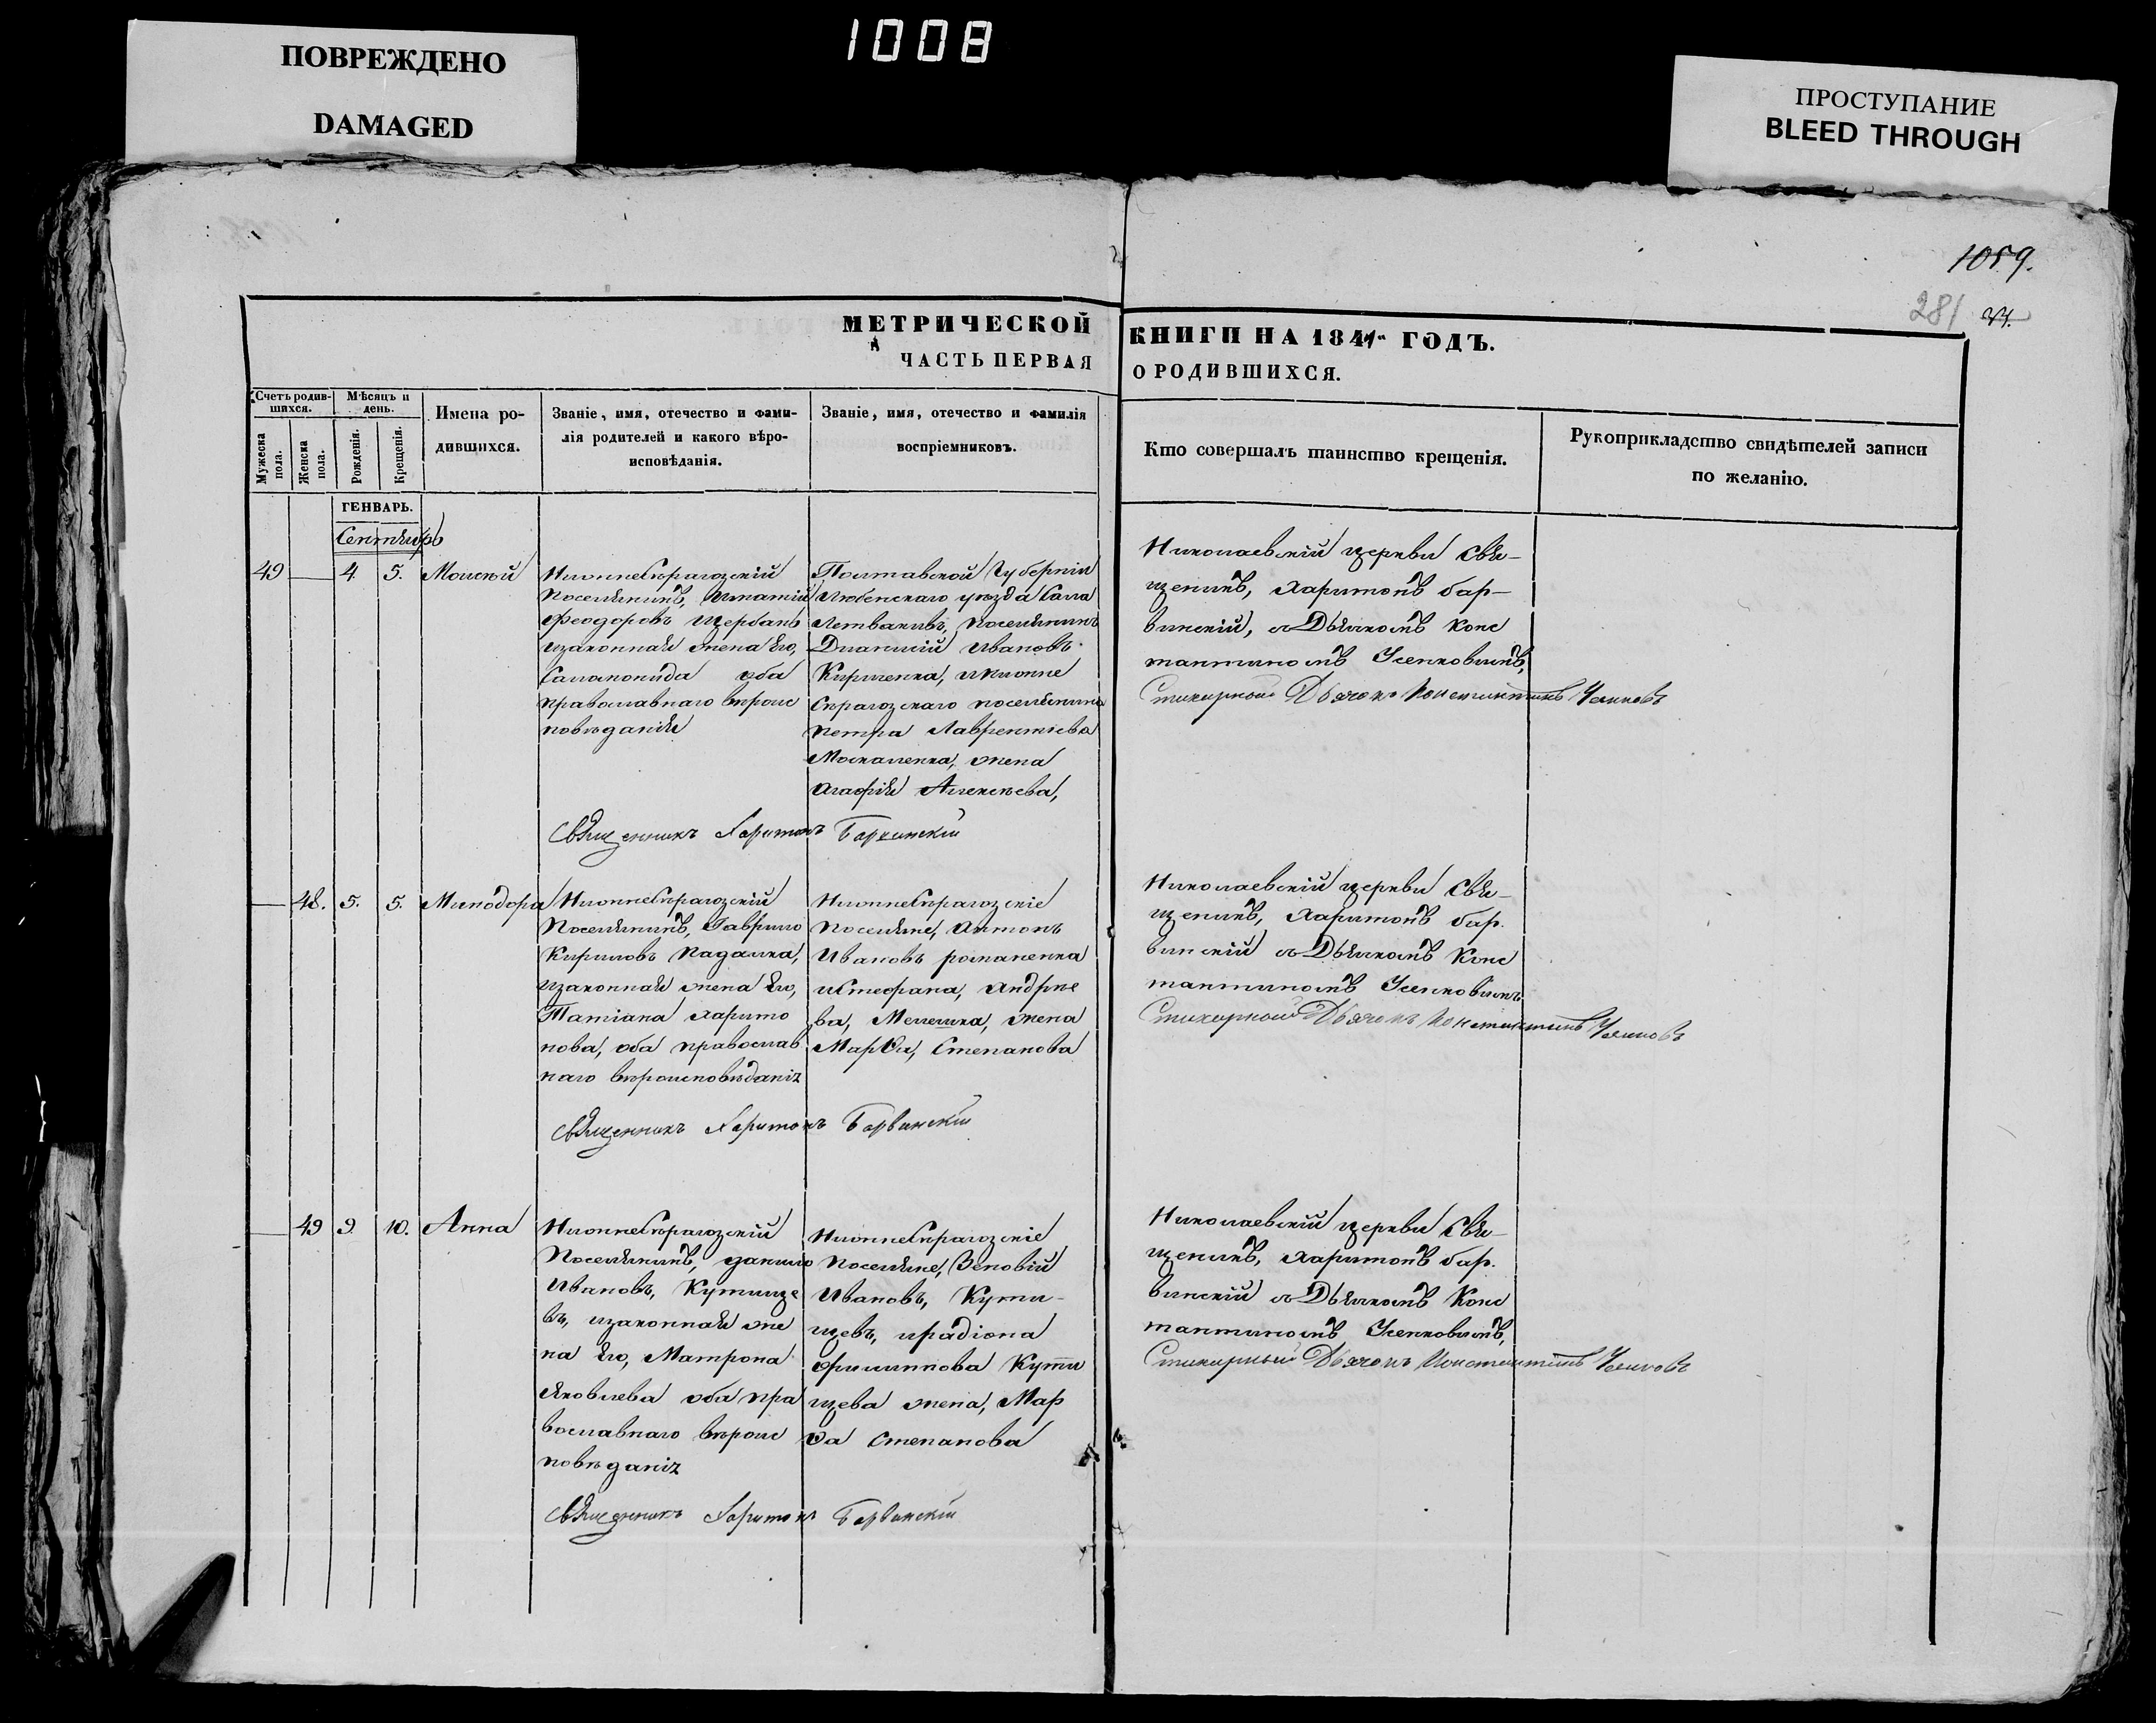 ПОВРЕЖДЕНО
DAMAGED
1008
ПРОСТУПАНИЕ
BLEED THROUGH
1059.
281
МЕТРИЧЕСКОЙ КНИГИ НА 1841 ГОДЪ.
ЧАСТЬ ПЕРВАЯ О РОДИВШИХСЯ.
Счетъ родив-
шихся.
Мужеска
пола.
Женска
пола.
Мѣсяцъ и
день.
Рожденія.
Крещенія.
Имена ро-
дившихся.
Званіе, имя, отечество и фами-
лія родителей и какого вѣро-
исповѣданія.
Званіе, имя, отечество и фамилія
воспріемниковъ.
Кто совершалъ таинство крещенія.
Рукоприкладство свидѣтелей записи
по желанію.
ГЕНВАРЬ.
Сентябрь
49 — 4 5. Моисей
Нижнесѣрагозскій
Поселянинъ, Игнатій
Феодоровъ Щербань
изаконная жена Его,
Саламонида оба
православнаго вѣроис
повѣданія
Полтавской Губерніи
Любенскаго уѣзда Села
поселянинъ
Ивановъ
Кириленка, инижне
Сѣрагозскаго поселянина
Петра Лаврентіева
Москаленка, жена
Агафія Алексѣева,
Священникъ Харитонъ Барвинскій
Николаевскій церкви Свя-
щеникъ, Харитонъ бар-
винскій, съ Дьячкомъ Конс
тантиномъ Усенковимъ,
Стихарный Дьячокъ Константинъ Усенковъ
— 48. 5. 5. Минодора
Нижнесѣрагозскій
Поселянинъ, Гаврило
Кириловъ Падалка,
изаконная жена Его,
Татіана Харито
нова, оба православ
наго вѣроисповѣданія
Нижнесѣрагозскіе
Поселяне, Антонъ
Ивановъ романенка
иСтефана, Андрие
ва, жена
Марѳа, Степанова
Священникъ Харитонъ Барвинскій
Николаевскій церкви Свя-
щеникъ, Харитонъ бар.
винскій съ Дьячкомъ Конс
тантиномъ Усенковимъ
Стихарный Дьячокъ Константинъ Усенковъ
— 49 9 10. Анна
Нижнесѣрагозскій
Поселянинъ, данило
Ивановъ, Кутище
въ, изаконная же
на Его, Матрона
Яковлева оба пра
вославнаго вѣроис
повѣданія
Нижнесѣрагозскіе
Поселяне, Зеновій
Ивановъ, Кути-
щевъ, ирадіона
Филиппова Кути
щева жена, Мар
ѳа Степанова
Священникъ Харитонъ Барвинскій
Николаевскій церкви Свя-
щеникъ, Харитонъ бар.
винскій съ Дьячкомъ Конс
тантиномъ Усенковимъ,
Стихарный Дьячокъ Константинъ Усенковъ